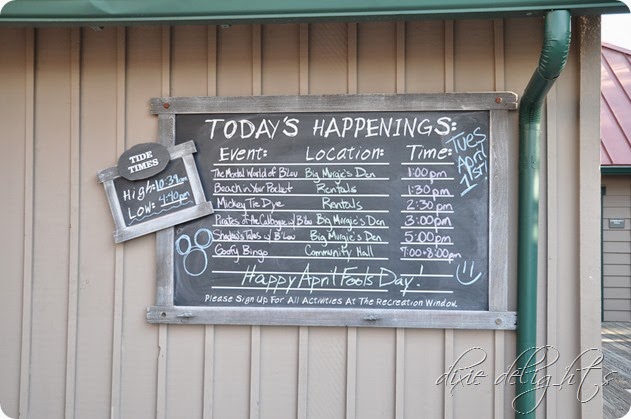 TODAY'S HAPPENINGS:
EVENT: LOCATION: TIME:
The Mental World of B'Lou Big Murgie's Den 1:00pm
Beach in Your Pocket Rentals 1:30pm
Mickey Tie Dye Rentals 2:30pm
Pirates of the Cabbage w/ B'Lou Big Murgie's Den 3:00pm
Shadow's Tales w/ B'Lou Big Murgie's Den 5:00pm
Goofy Bingo Community Hall 7:00+8:00pm
Happy April Fools Day!
PLEASE SIGN UP FOR ALL ACTIVITIES AT THE RECREATION WINDOW.
TUES
APRIL
1ST!
TIDE
TIMES
HIGH: 10:39am
LOW: 4:40pm
dixie delights